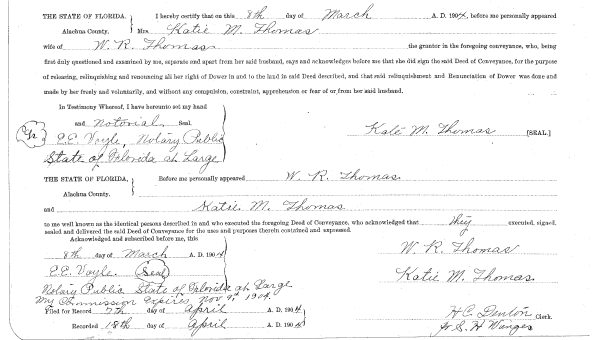 THE STATE OF FLORIDA, I hereby certify that on this 8th day of March A. D. 1904, before me personally appeared
Alachua County. Mrs Katie M. Thomas
wife of W. R. Thomas the grantor in the foregoing conveyance, who, being
first duly questioned and examined by me, separate and apart from her said husband, says and acknowledges before me that she did sign the said Deed of Conveyance, for the purpose
of releasing, relinquishing and renouncing all her right of Dower in and to the land in said Deed described, and that said relinquishment and Renunciation of Dower was done and
made by her freely and voluntarily, and without any compulsion, constraint, apprehension or fear of or from her said husband.
In Testimony Whereof, I have hereunto set my hand
and Notorial Seal.
E.E. Voyle, Notary Public Kate M. Thomas [SEAL.]
State of Florida at Large
THE STATE OF FLORIDA, Before me personally appeared W. R. Thomas
Alachua County.
and Katie M. Thomas
to me well known as the identical persons described in and who executed the foregoing Deed of Conveyance, who acknowledged that they executed, signed,
sealed and delivered the said Deed of Conveyance for the uses and purposes therein contained and expressed.
Acknowledged and subscribed before me, this
8th day of March A. D. 1904 W. R. Thomas
E.E. Voyle. (Seal) Katie M. Thomas.
Notary Public State of Florida at Large
My Commission expires Nov 9th 1904.
Filed for Record 7th day of April A. D. 1904 H.C. Denton Clerk.
Recorded 18th day of April A. D. 1904 S. H Wienges